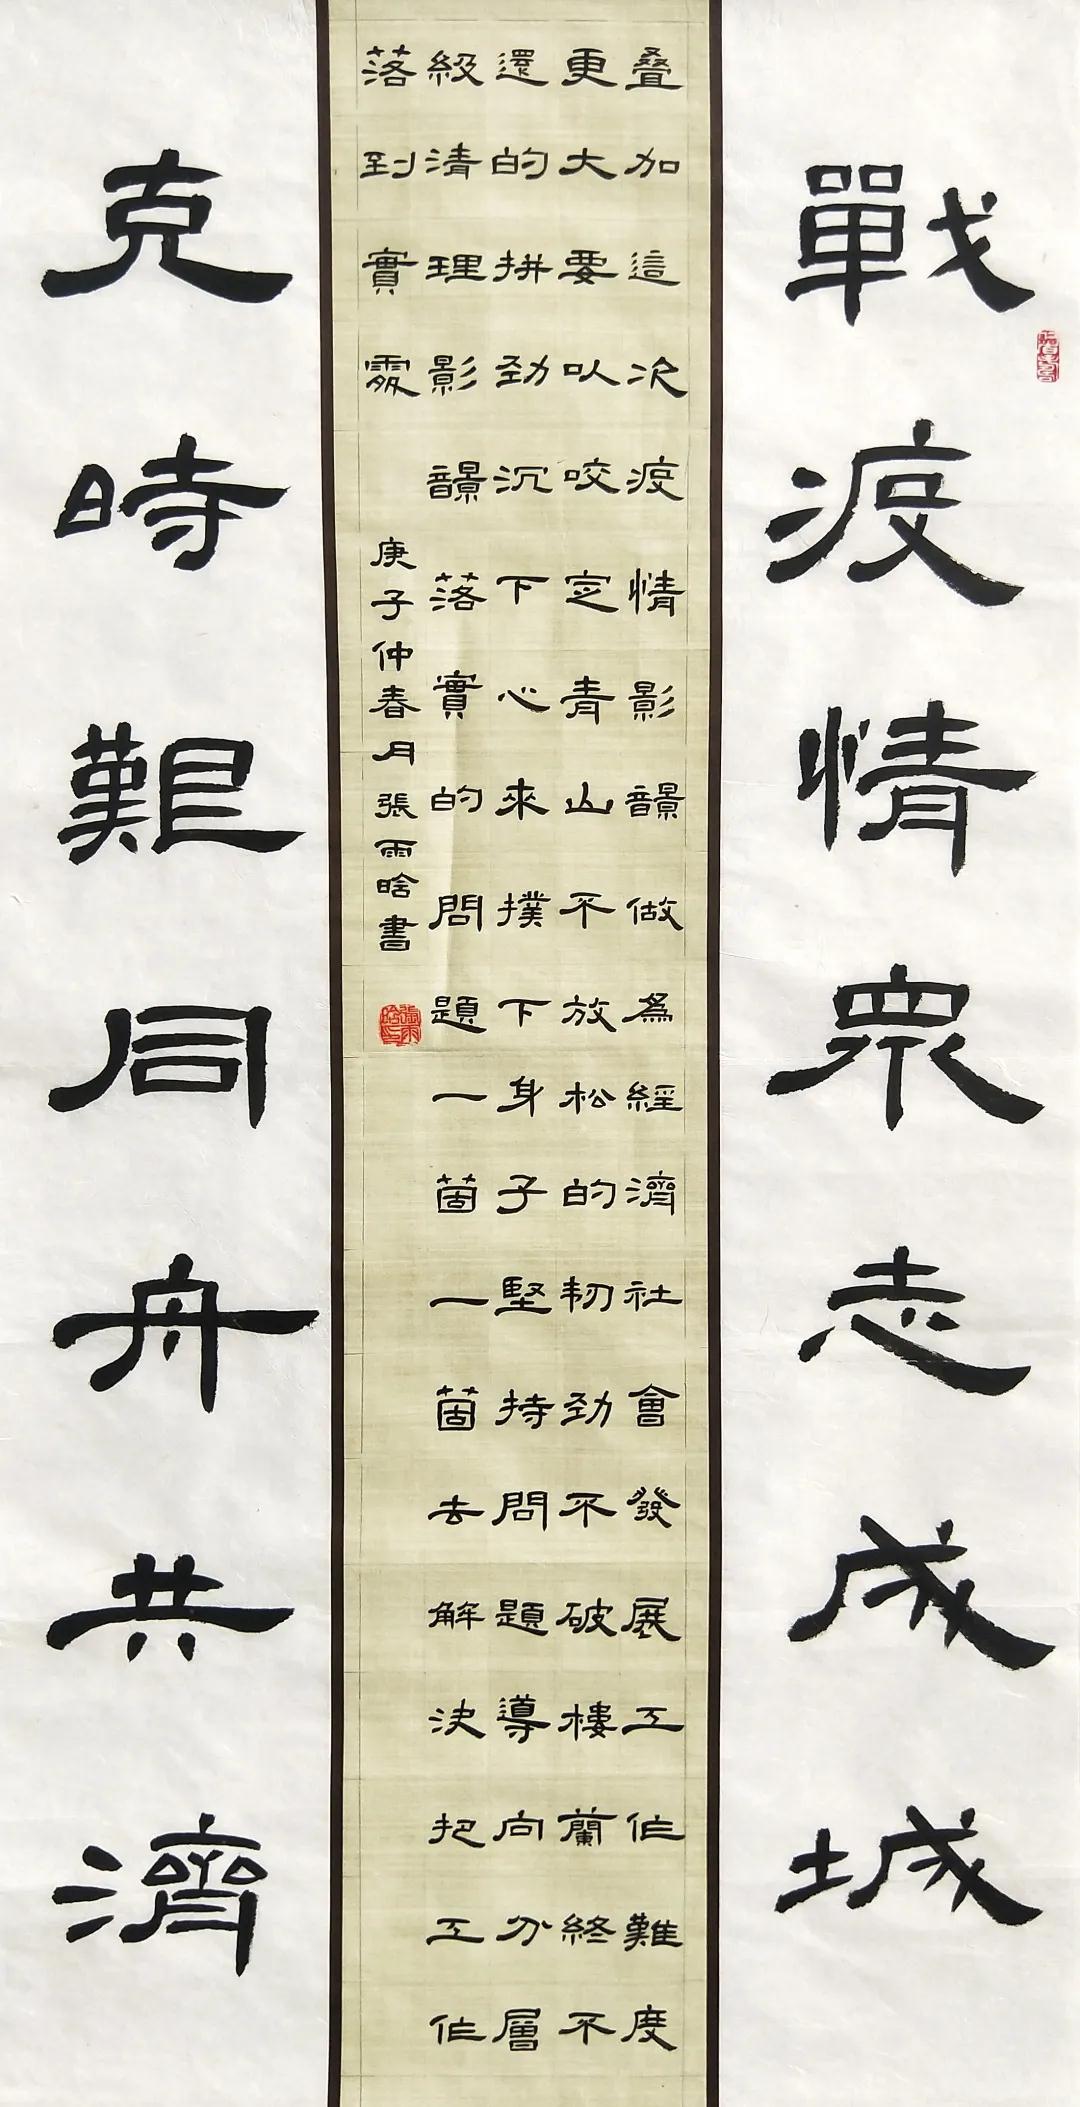 戰疫情衆志成城
叠加這次疫情影響做為經濟社會發展工作難度
更大要以咬定青山不放松的韧劲不破樓蘭終不
還的拼劲沉下心來撲下身子堅持問題導向分層
級清理影響落實的問題一箇一箇去解決把工作
落到實處
庚子仲春月張雨晗書
克時艱同舟共濟